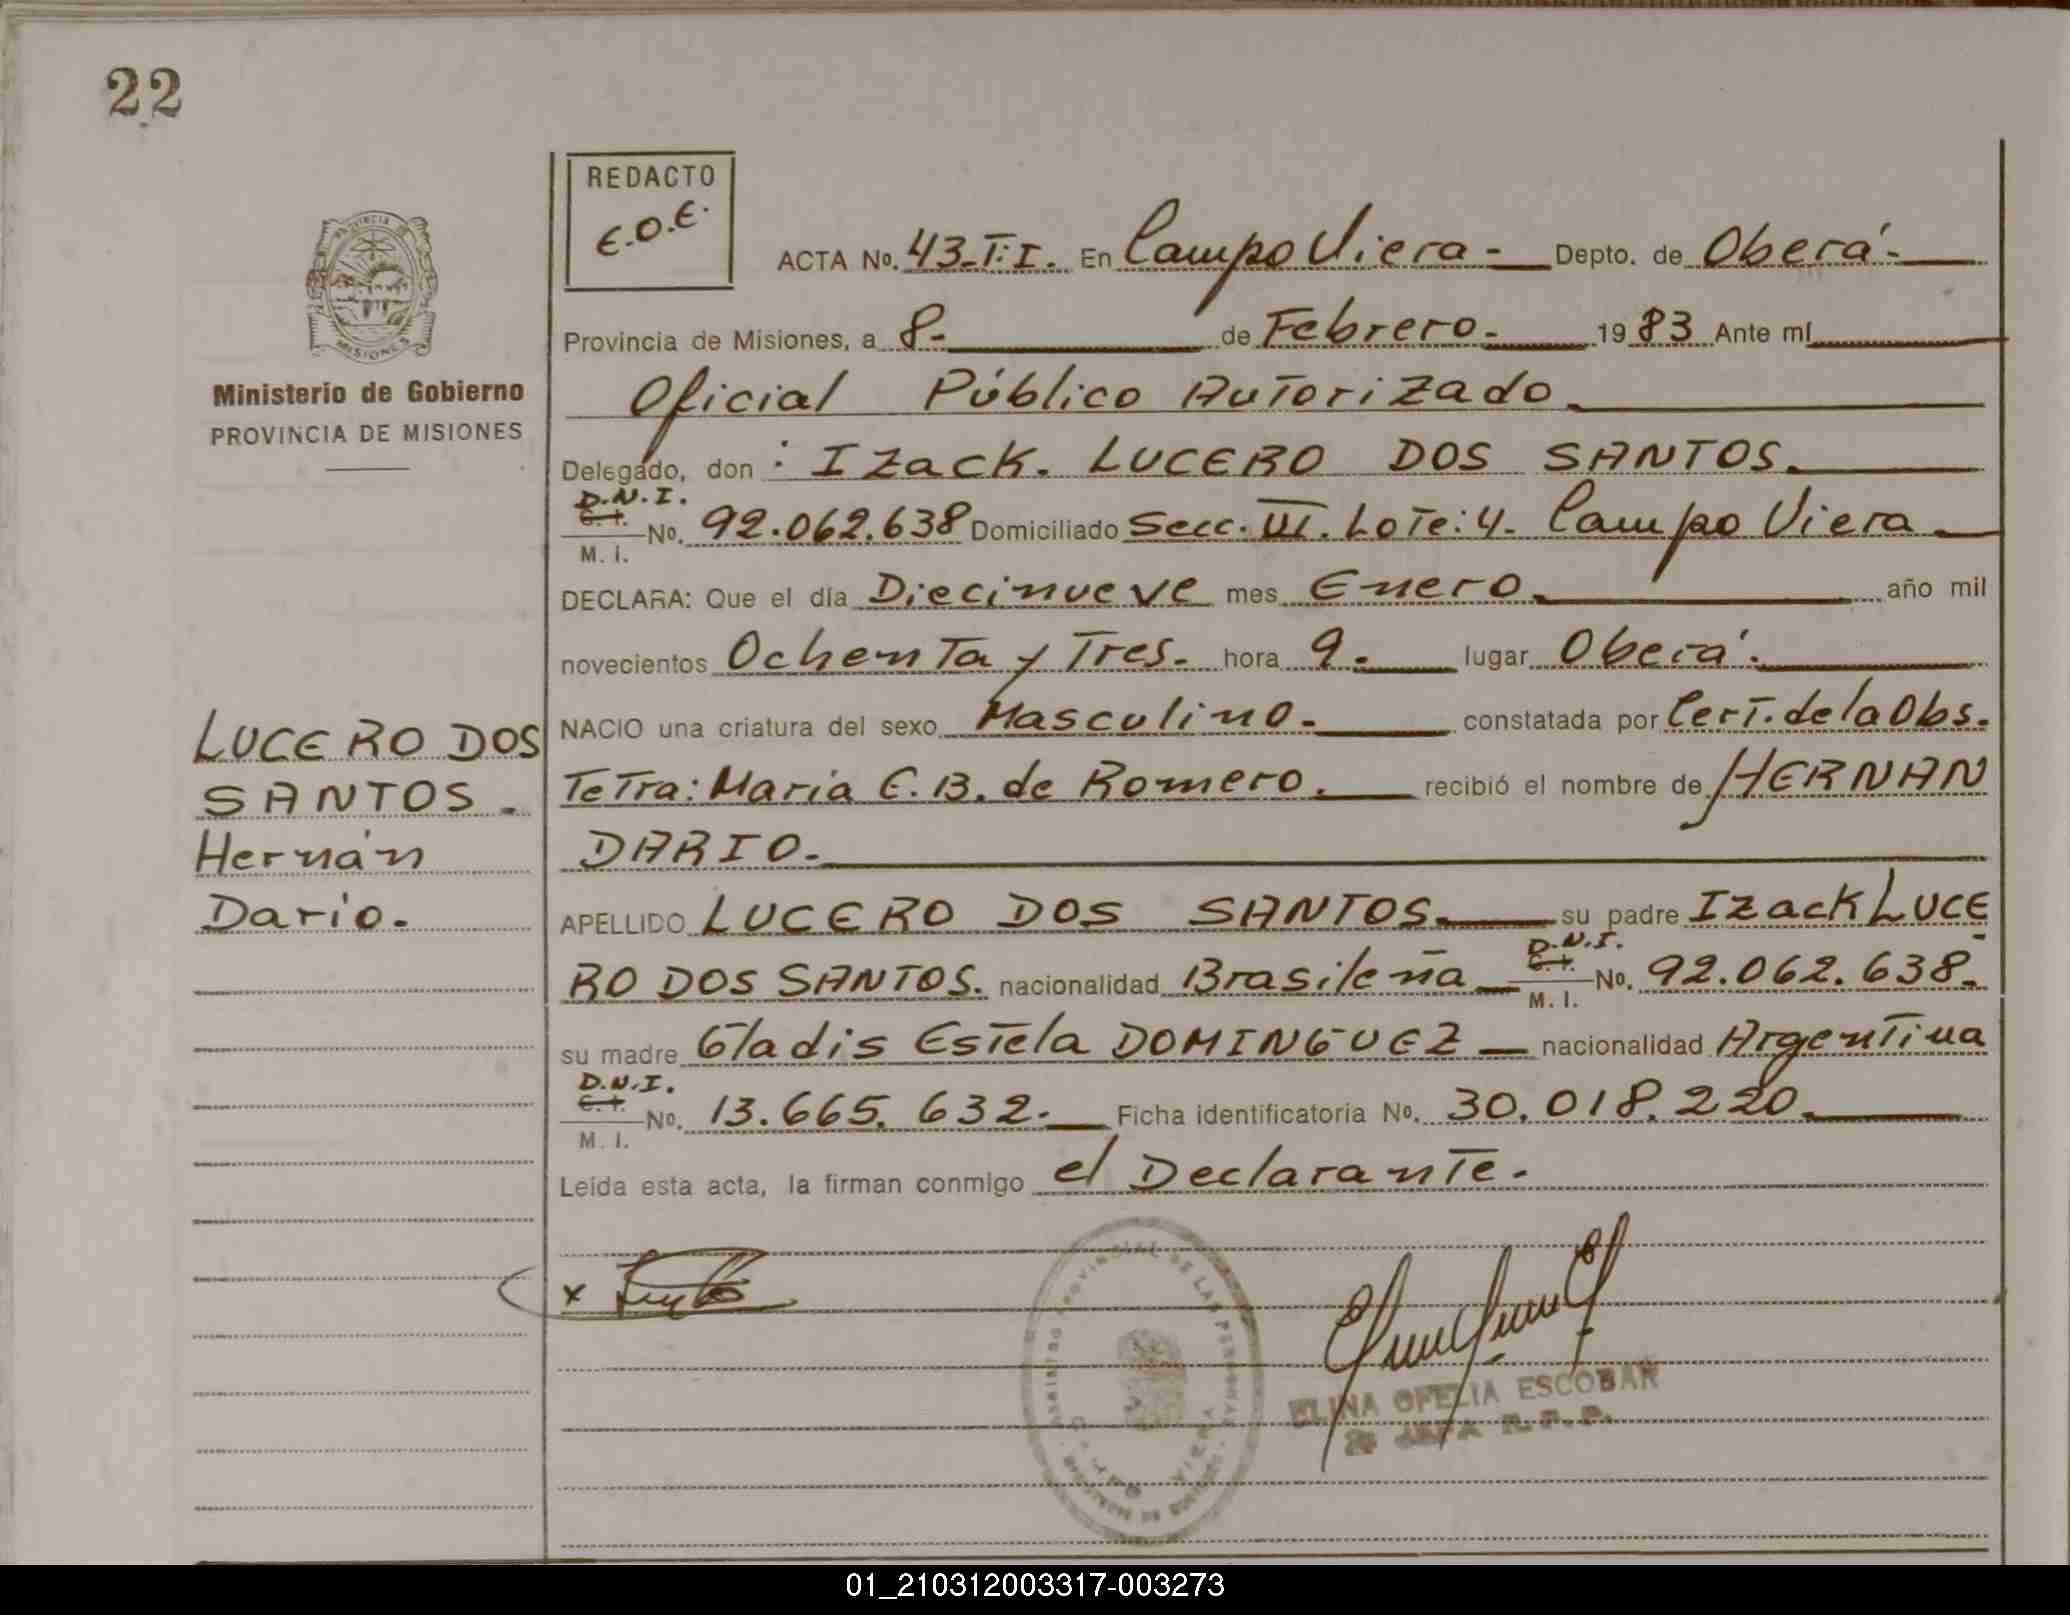 22
REDACTO
E.O.E.
ACTA No. 43-T:I. En Campo Viera - Depto. de Oberá -
Provincia de Misiones, a 8- de Febrero - 1983 Ante mí
Oficial Público Autorizado
Delegado, don : Izack. LUCERO DOS SANTOS.
D.N.I.
C. I.
M. I.
No. 92.062.638 Domiciliado Secc. III. Lote: 4. Campo Viera
DECLARA: Que el día Diecinueve mes Enero año mil
novecientos Ochenta y Tres. hora 9. lugar Oberá.
NACIO una criatura del sexo Masculino. constatada por Cert. de la Obs.
Tetra: Maria E. B. de Romero. recibió el nombre de HERNAN
DARIO.
APELLIDO LUCERO DOS SANTOS. su padre Izack LUCE
RO DOS SANTOS. nacionalidad Brasileña D.N.I. C. I. M. I. No. 92.062.638.
su madre Gladis Estela DOMINGUEZ nacionalidad Argentina
D.N.I.
C. I.
M. I.
No. 13.665.632. Ficha identificatoria No. 30.018.220.
Leída esta acta, la firman conmigo el Declarante.
x
ELINA OFELIA ESCOBAR
JEFA R.P.P.
PROVINCIA
MISIONES
Ministerio de Gobierno
PROVINCIA DE MISIONES
LUCERO DOS
SANTOS.
Hernán
Dario.
PROVINCIAL DE LAS PERSONAS
01_210312003317-003273